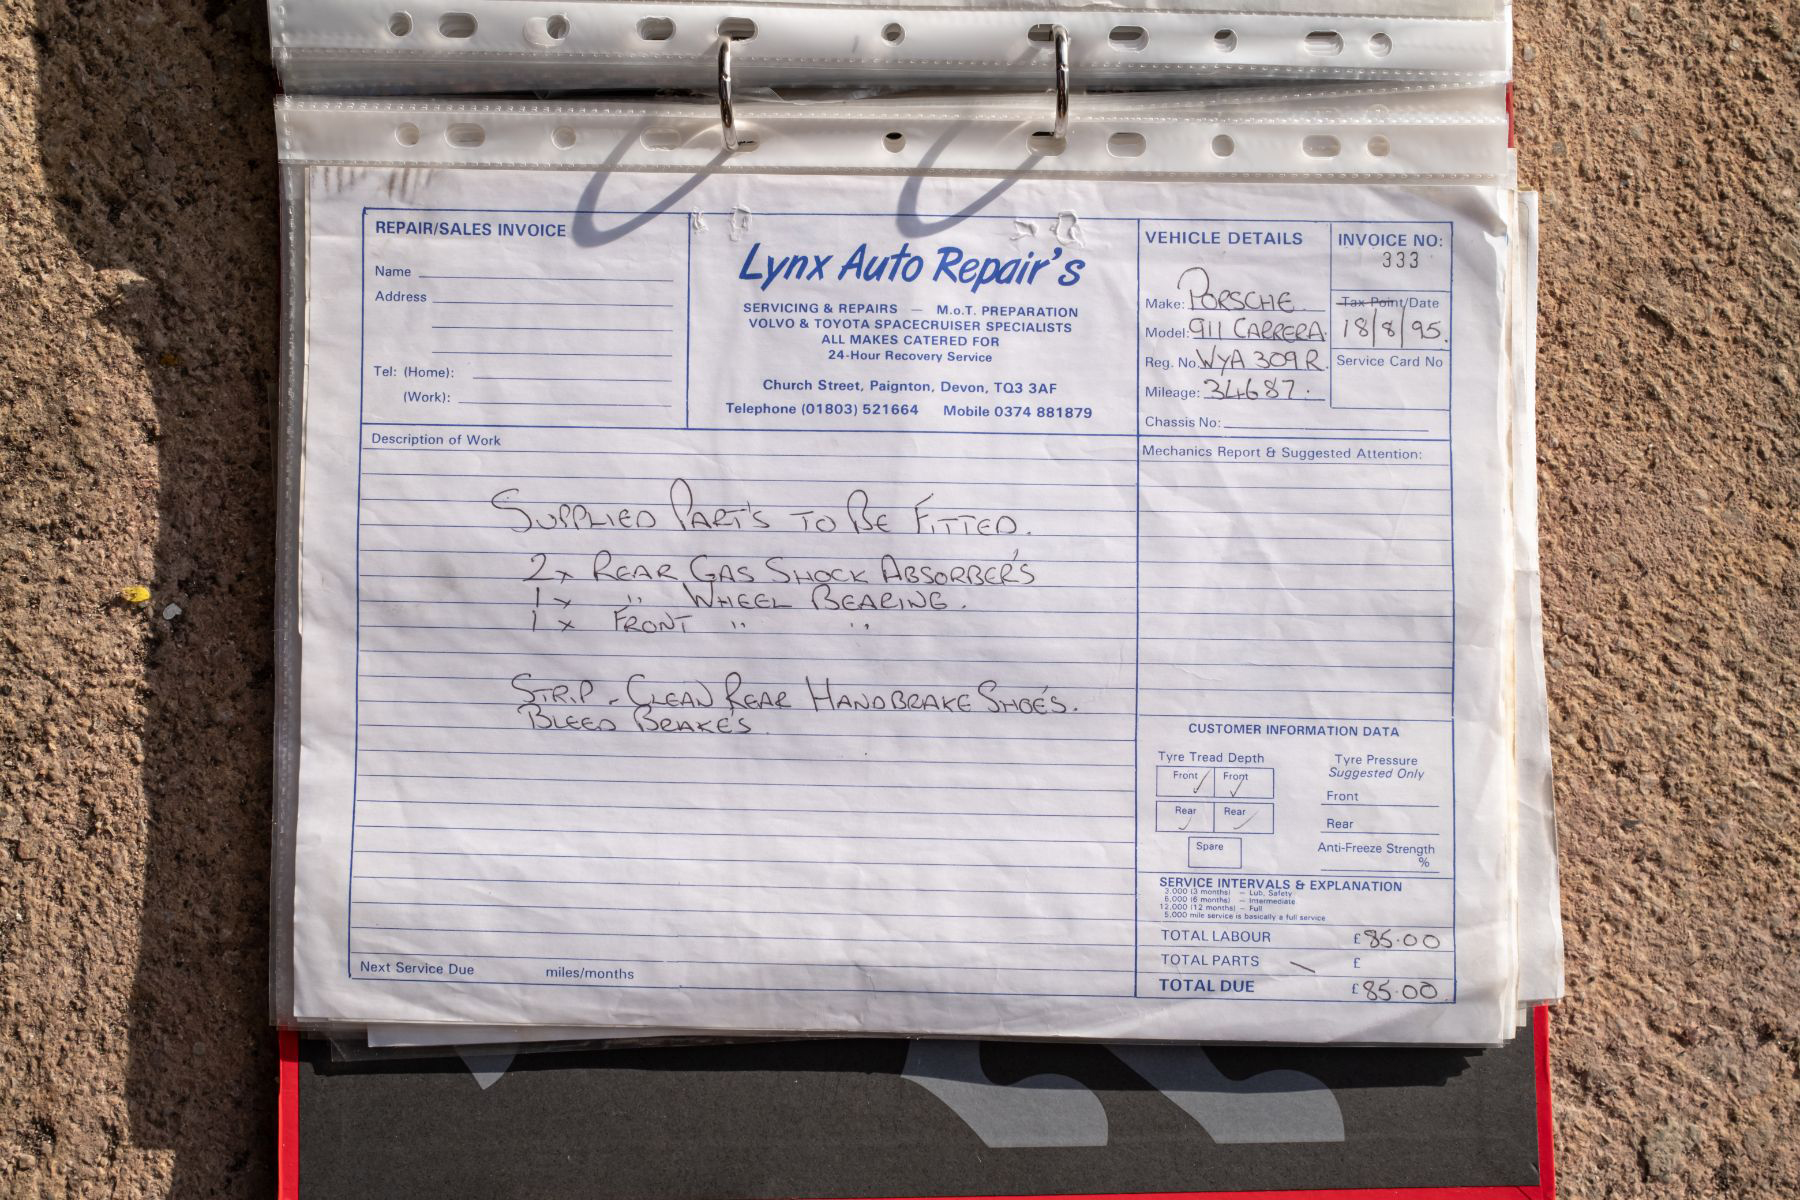 REPAIR/SALES INVOICE
Name
Address
Tel: (Home):
(Work):
Lynx Auto Repair's
SERVICING & REPAIRS — M.o.T. PREPARATION
VOLVO & TOYOTA SPACECRUISER SPECIALISTS
ALL MAKES CATERED FOR
24-Hour Recovery Service
Church Street, Paignton, Devon, TQ3 3AF
Telephone (01803) 521664 Mobile 0374 881879
VEHICLE DETAILS
Make: PORSCHE
Model: 911 CARRERA.
Reg. No. WYA 309 R.
Mileage: 34687.
Chassis No:
INVOICE NO:
333
Tax Point/Date
18/8/95.
Service Card No
Description of Work
SUPPLIED PART'S TO BE FITTED.
2x REAR GAS SHOCK ABSORBER'S
1 x " WHEEL BEARING.
1 x FRONT " "
STRIP - CLEAN REAR HANDBRAKE SHOE'S.
BLEED BRAKE'S.
Next Service Due miles/months
Mechanics Report & Suggested Attention:
CUSTOMER INFORMATION DATA
Tyre Tread Depth
Front ✓ Front ✓
Rear ✓ Rear ✓
Spare
Tyre Pressure
Suggested Only
Front
Rear
Anti-Freeze Strength
%
SERVICE INTERVALS & EXPLANATION
3,000 (3 months) — Lub, Safety
6,000 (6 months) — Intermediate
12,000 (12 months) — Full
5,000 mile service is basically a full service
TOTAL LABOUR £85.00
TOTAL PARTS — £
TOTAL DUE £85.00.